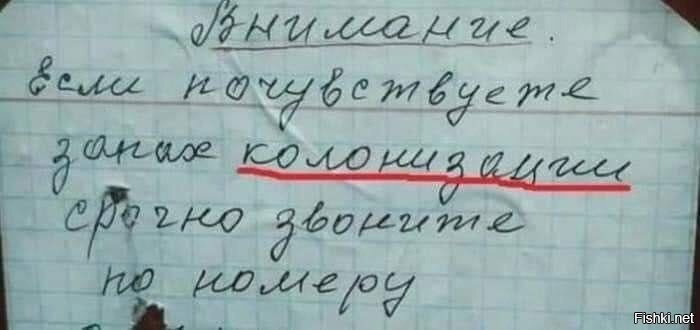 Внимание.
Если почувствуете
запах колонизации
срочно звоните
по номеру
Fishki.net